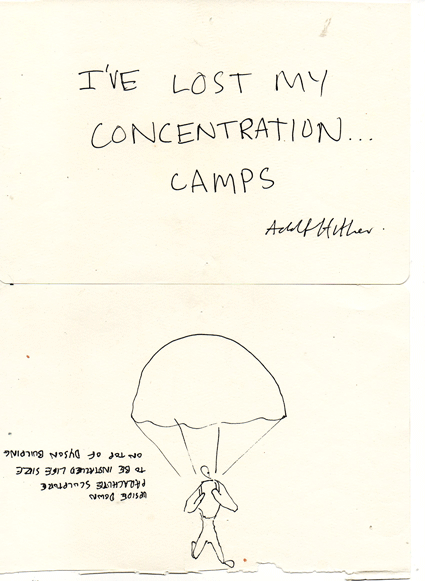 I'VE LOST MY
CONCENTRATION...
CAMPS
Adolf Hitler.
UPSIDE DOWN
PARACHUTE SCULPTURE
TO BE INSTALLED LIFE SIZE
ON TOP OF DYSON BUILDING